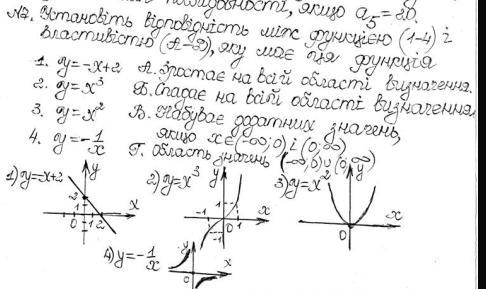 послідовності, якщо a₅ = 20.
№2. Установіть відповідність між функцією (1-4) і
властивістю (А-Д), яку має ця функція
1. y=-x+2 А. Зростає на всій області визначення.
2. y=x³ Б. Спадає на всій області визначення.
3. y=x² В. Набуває додатних значень,
якщо x∈(-∞;0) і (0;∞)
4. y=-1/x Г. Область значень (-∞;0)∪(0;∞)
1) y=-x+2 y 2 1 0 1 2 x
2) y=x³ y 1 -1 0 1 -1 x
3) y=x² y 0 x
4) y=-1/x y 0 x